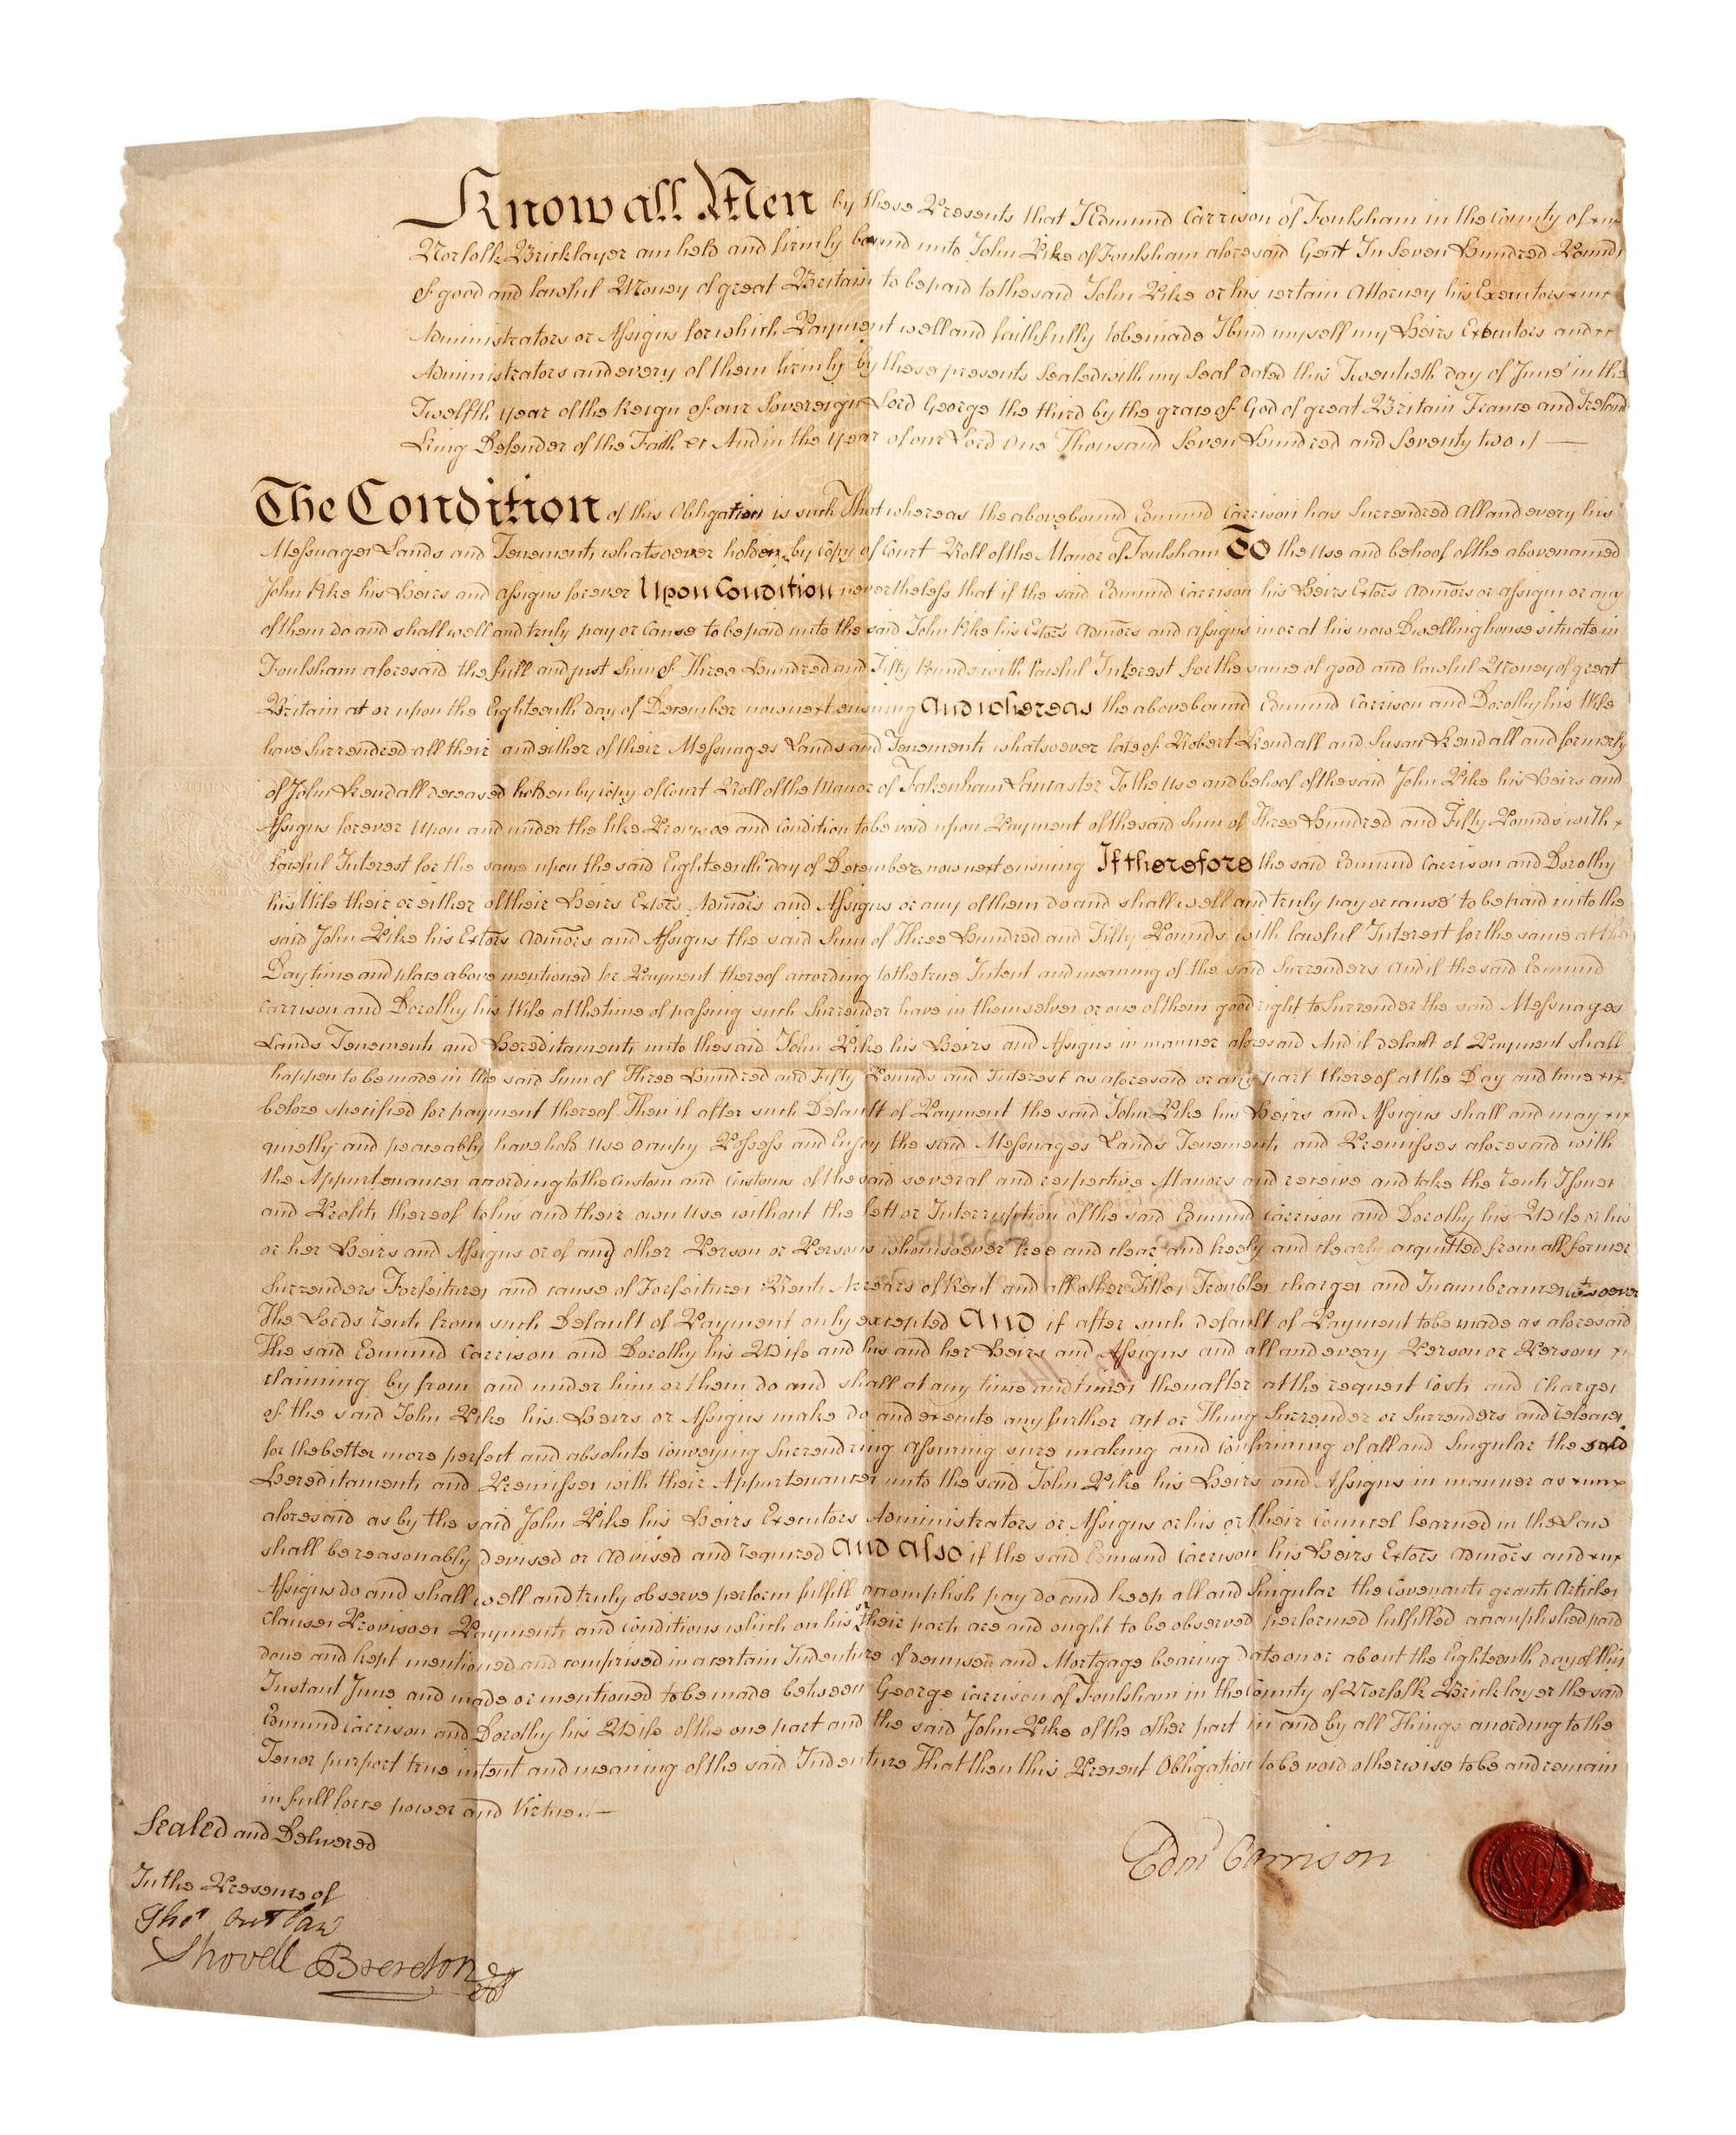 Know all Men by these Presents that I Edmund Carrison of Foulsham in the County of
Norfolk Bricklayer am held and firmly bound unto John Pike of Foulsham aforesaid Gent In Seven Hundred Pounds
of good and lawful Money of great Britain to be paid to the said John Pike or his certain Attorney his Executors
Administrators or Assigns for which Payment well and faithfully to be made I bind myself my Heirs Executors and
Administrators and every of them firmly by these presents Sealed with my Seal dated this Twentieth day of June in the
Twelfth year of the Reign of our Sovereign Lord George the third by the grace of God of great Britain France and Ireland
King Defender of the Faith &c And in the year of our Lord One Thousand Seven Hundred and Seventy two
The Condition of this Obligation is such That whereas the abovebound Edmund Carrison has Surrendred all and every his
Messuages Lands and Tenements whatsoever holden by Copy of Court Roll of the Manor of Foulsham To the use and behoof of the abovenamed
John Pike his Heirs and assigns forever Upon Condition nevertheless that if the said Edmund Carrison his Heirs Extors Admors or assigns or any
of them do and shall well and truly pay or Cause to be paid unto the said John Pike his Extors Admors and assigns in or at his now Dwellinghouse situate in
Foulsham aforesaid the full and just Sum of Three Hundred and Fifty Pounds with lawful Interest for the same of good and lawful Money of great
Britain at or upon the Eighteenth day of December now next ensuing And whereas the abovebound Edmund Carrison and Dorothy his Wife
have Surrendred all their and either of their Messuages Lands and Tenements whatsoever late of Robert Kendall and Susan Kendall and formerly
of John Kendall deceased holden by Copy of Court Roll of the Manor of Fakenham Lancaster To the use and behoof of the said John Pike his Heirs and
Assigns forever Upon and under the like Provisoe and Condition to be void upon Payment of the said Sum of Three Hundred and Fifty Pounds with
lawful Interest for the same upon the said Eighteenth day of December now next ensuing If therefore the said Edmund Carrison and Dorothy
his Wife their or either of their Heirs Extors Admors and Assigns or any of them do and shall well and truly pay or cause to be paid unto the
said John Pike his Extors Admors and Assigns the said Sum of Three Hundred and Fifty Pounds with lawful Interest for the same at the
Day time and place above mentioned for Payment thereof according to the true Intent and meaning of the said Surrenders And if the said Edmund
Carrison and Dorothy his Wife at the time of passing such Surrender have in themselves or one of them good right to Surrender the said Messuages
Lands Tenements and Hereditaments unto the said John Pike his Heirs and Assigns in manner aforesaid And if default of Payment shall
happen to be made in the said Sum of Three Hundred and Fifty Pounds and Interest as aforesaid or any part thereof at the Day and time
before specified for payment thereof Then if after such Default of Payment the said John Pike his Heirs and Assigns shall and may
quietly and peaceably have hold use occupy Possess and Enjoy the said Messuages Lands Tenements and Premisses aforesaid with
the Appurtenances according to the Custom and Customs of the said several and respective Manors and receive and take the rents Issues
and Profits thereof to his and their own use without the lett or Interruption of the said Edmund Carrison and Dorothy his Wife or his
or her Heirs and Assigns or of any other Person or Persons whomsoever free and clear and freely and clearly acquitted from all former
Surrenders Forfeitures and cause of Forfeitures Rents Arrears of Rent and all other Titles Troubles charges and Incumbrances wtsoever
The Lords rents from such Default of Payment only excepted And if after such default of Payment to be made as aforesaid
The said Edmund Carrison and Dorothy his Wife and his and her Heirs and Assigns and all and every Person or Persons
claiming by from and under him or them do and shall at any time and times thenafter at the request Costs and Charges
of the said John Pike his Heirs or Assigns make do and execute any further Act or Thing Surrender or Surrenders and releases
for the better more perfect and absolute Conveying Surrendring assuring sure making and Confirming of all and Singular the said
Hereditaments and Premisses with their Appurtenances unto the said John Pike his Heirs and Assigns in manner as
aforesaid as by the said John Pike his Heirs Executors Administrators or Assigns or his or their Councel learned in the Law
shall be reasonably devised or advised and required And also if the said Edmund Carrison his Heirs Extors Admors and
Assigns do and shall well and truly observe perform fulfill accomplish pay do and keep all and Singular the Covenants grants Articles
Clauses Provisoes Payments and Conditions which on his or their parts are and ought to be observed performed fulfilled accomplished paid
done and kept mentioned and comprised in a certain Indenture of demise and Mortgage bearing date on or about the Eighteenth day of this
Instant June and made or mentioned to be made between George Carrison of Foulsham in the County of Norfolk Bricklayer the said
Edmund Carrison and Dorothy his Wife of the one part and the said John Pike of the other part in and by all Things according to the
Tenor purport true intent and meaning of the said Indenture That then this Present Obligation to be void otherwise to be and remain
in full force power and Virtue
Sealed and Delivered
In the Presence of
Edmd Carrison
Thos Outlaw
Shovell Brereton